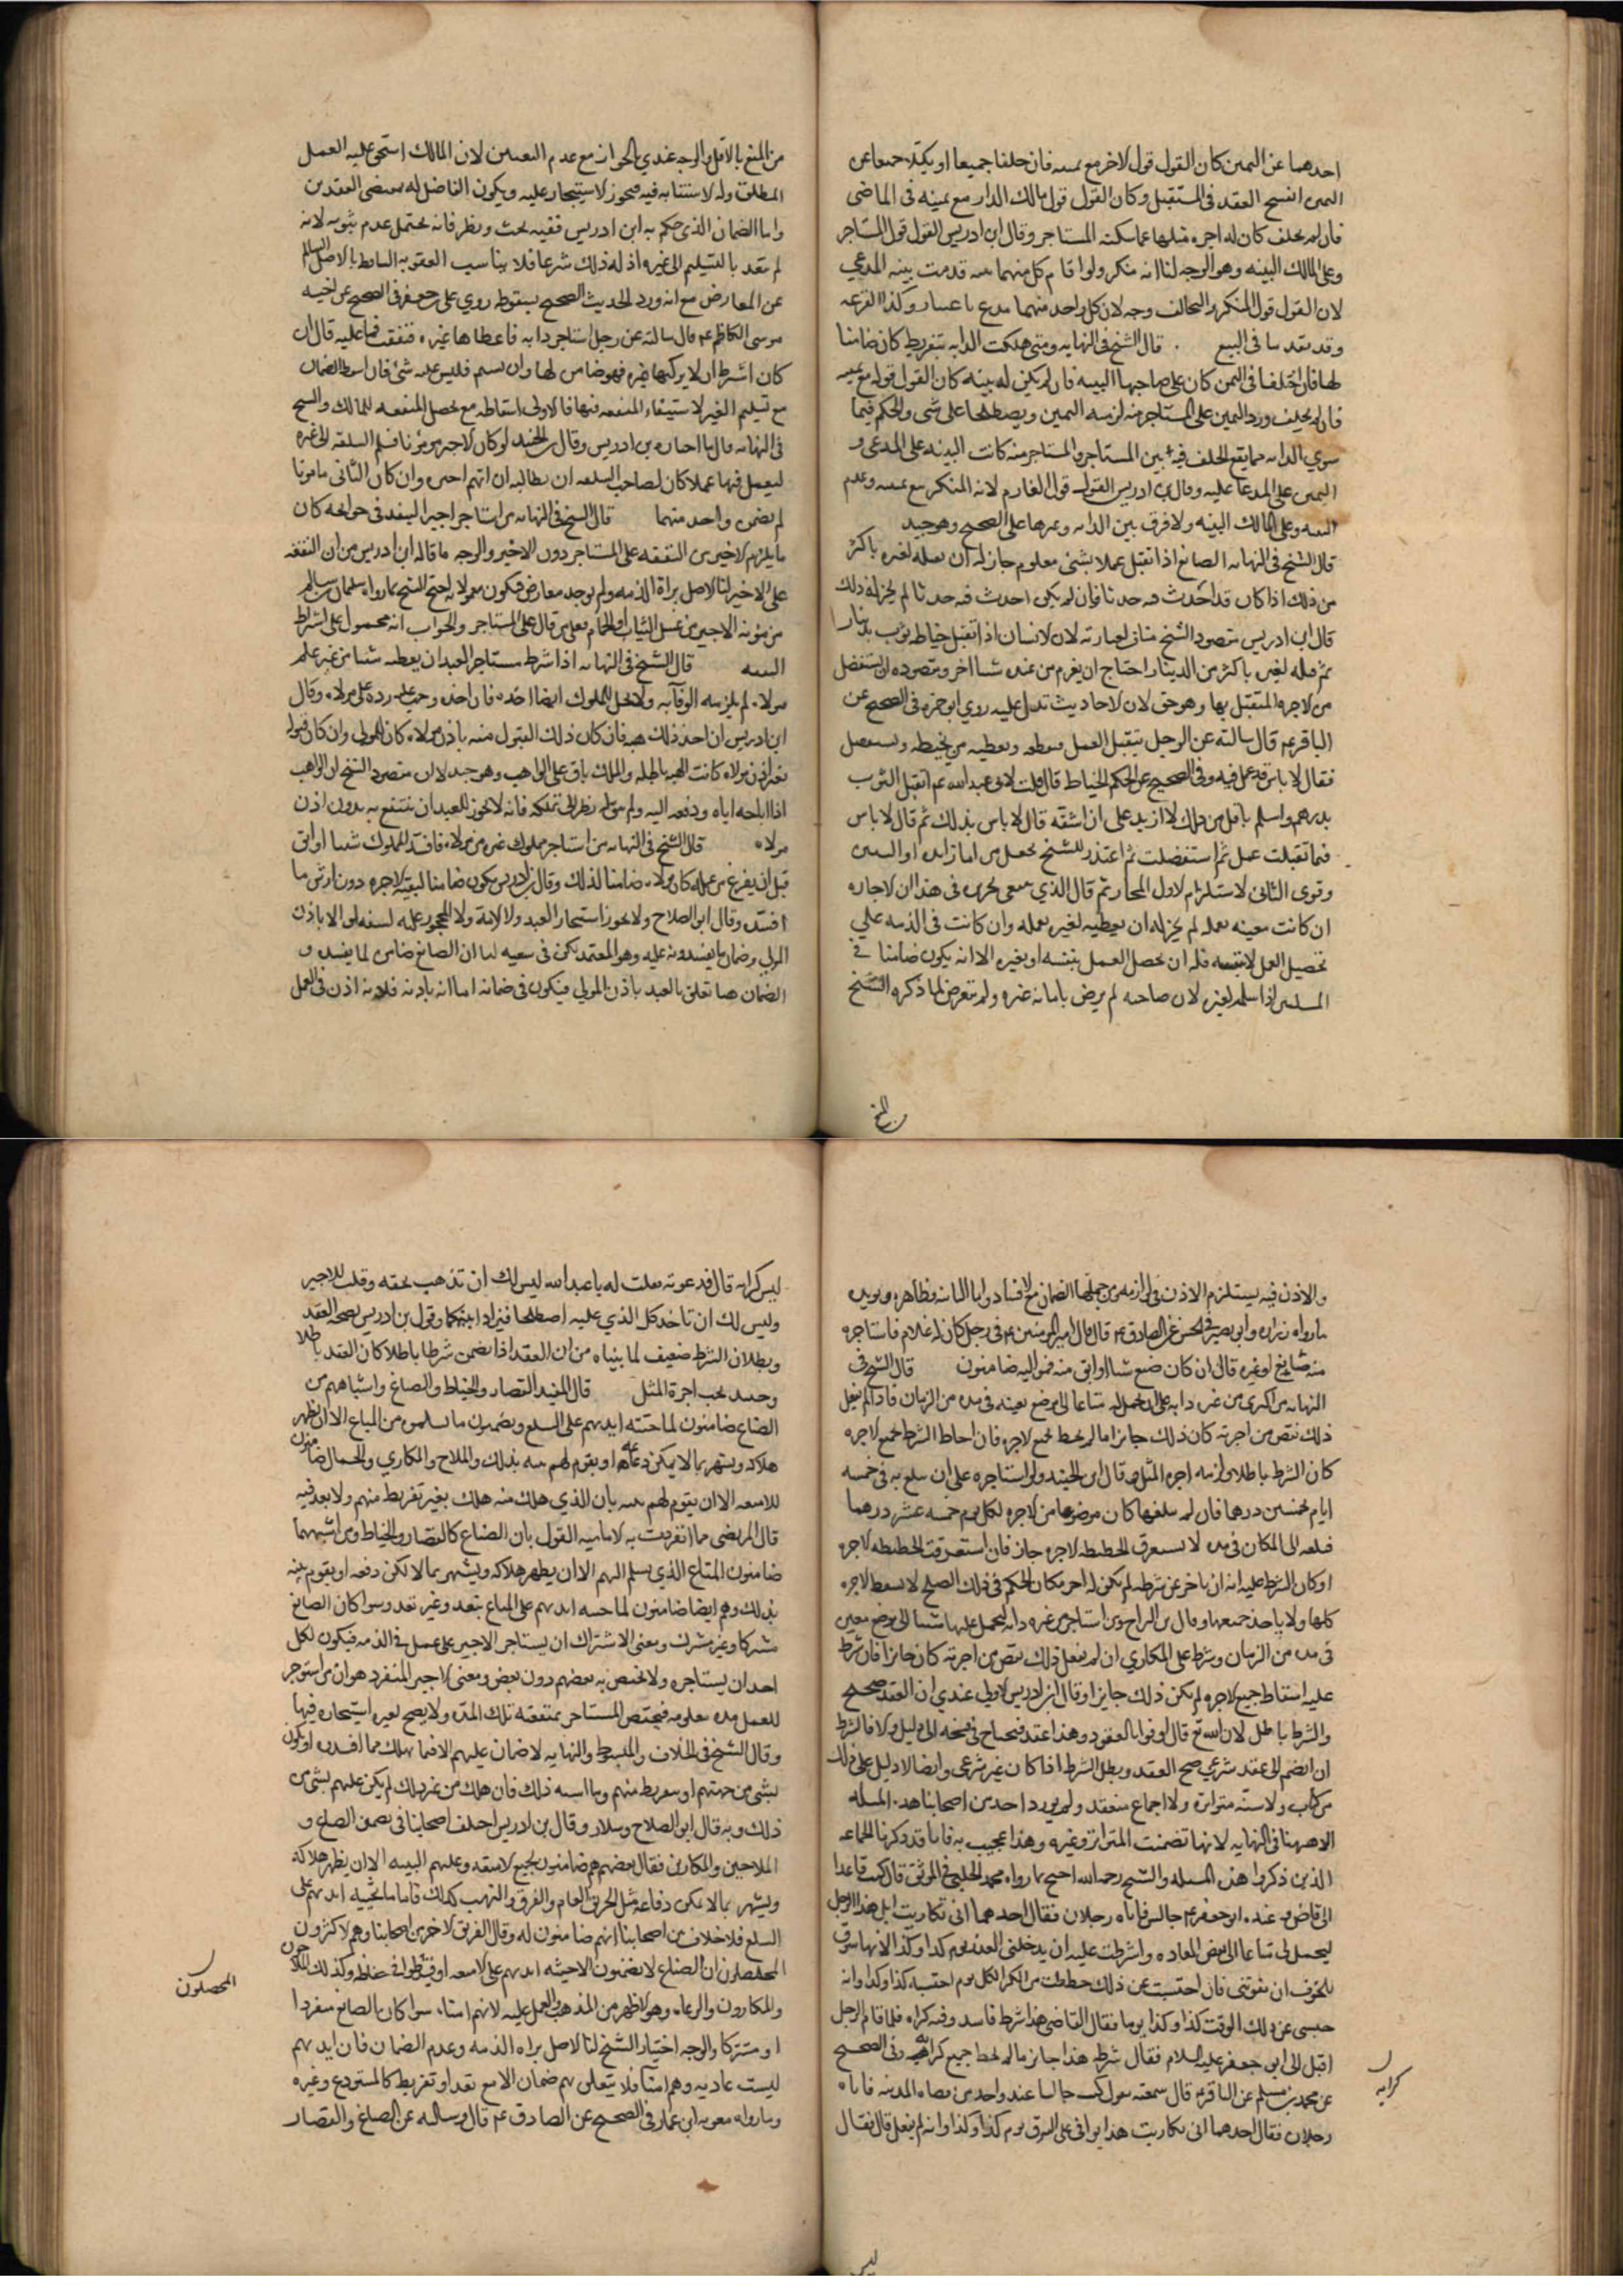 احدهما عن اليمين كان القول قول الاخر مع يمينه فان حلفا جميعا او نكلا جميعا عن
اليمين انفسخ العقد في المستقبل وكان القول قول مالك الدار مع يمينه في الماضى
فان لم يحلف كان له اجره مثلها عما سكنه المستاجر وقال ابن ادريس القول قول المستاجر
وعلى المالك البينه وهو الوجه لنا انه منكر ولو اقام كل منهما بينه قدمت بينه المدعي
لان القول قول المنكر وللتحالف وجه لان كل واحد منهما مدع باعتبار وكذا القرعه
وقد تقدما في البيع قال الشيخ في النهايه ومتى هلكت الدابه بتفريط كان ضامنا
لها فان اختلفا في الثمن كان على صاحبها البينه فان لم يكن له بينه كان القول قوله مع يمينه
فان لم يحلف ورد اليمين على المستاجر منه لزمه اليمين او يصطلحا على شى والحكم فيما
سوى الدابه مما يقع الخلف فيه بين المستاجر والمستاجر منه كانت البينه على المدعى و
اليمين على المدعا عليه وقال بن ادريس القول قول الغارم لانه المنكر مع يمينه وعدم
البينه وعلى المالك البينه ولا فرق بين الدابه وغيرها على الصحيح وهو جيد
قال الشيخ في النهايه الصانع اذا تقبل عملا بشئ معلوم جاز له ان يقبله لغيره باكثر
من ذلك اذا كان قد احدث فيه حدثا فان لم يكن احدث فيه حدثا لم يجز له ذلك
قال ابن ادريس مقصود الشيخ مناف لعبارته لان الانسان اذا تقبل خياطه ثوب بدينار
ثم قبله لغيره باكثر من الدينار احتاج ان يغرم من عنده شيا اخر ومقصوده ان يستفضل
من الاجره المتقبل بها وهو حق لان الاحاديث تدل عليه روي ابو حمزه في الصحيح عن
الباقر عم قال سالته عن الرجل يتقبل العمل فيقطعه ويعطيه من يخيطه ويستفضل
فقال لا باس قد عمل فيه وفي الصحيح عن الحكم الخياط قال قلت لابي عبدالله عم اتقبل الثوب
بدرهم واسلم باقل من ذلك لا ازيد على ان اشقه قال لا باس بذلك ثم قال لا باس
فيما تقبلت عمل ثم استفضلت ثم اعتذر للشيخ
وقوى الثاني لاستلزام الاول المجاز ثم قال الذي ينبغي تحريره في هذا ان الاجاره
ان كانت معينه بعمله لم يجز له ان يعطيه لغيره بعمله وان كانت في الذمه على
تحصيل العمل لا بنفسه فله ان يحصل العمل بنفسه او بغيره الا انه يكون ضامنا في
المسلمين اذا سلمه لغيره لان صاحبه لم يرض بامانه غيره ولم يتعرض لما ذكره الشيخ
من المنع
من المنع بالاقل والوجه عندي الجواز مع عدم التعيين لان المالك استحق عليه العمل
المطلق وله الاستنابه فيه فيجوز الاستيجار عليه ويكون الفاضل له بمقتضى العقدين
واما الضمان الذى حكم به ابن ادريس ففيه بحث ونظر فانه يحتمل عدم ثبوته لانه
لم يتعد بالتسليم الى غيره اذ له ذلك شرعا فلا يناسب العقوبه الساقطه بالاصل السالم
عن المعارض مع انه ورد الحديث الصحيح بسقوطه روي على بن جعفر في الصحيح عن اخيه
موسى الكاظم عم قال سالته عن رجل استاجر دابه فاعطاها غيره فنفقت فما عليه قال ان
كان اشترط ان لا يركبها غيره فهو ضامن لها وان لم يسم فليس عليه شئ فان اسقط الضمان
مع تسليم الغير لاستيفاء المنفعه فيها فالاولى اسقاطه مع تحصل المنفعه للمالك والشيخ
في النهايه قال ما اختاره بن ادريس وقال بن الجنيد لو كان الاجير مؤتمنا فسلم السلعه الى غيره
ليعمل فيها عملا كان لصاحب السلعه ان يطالبه ان اتهم احدا وان كان الثاني مامونا
لم يضمن واحد منهما قال الشيخ في النهايه من استاجر اجيرا لينفذ في حوائجه كان
ما يلزم الاجير من النفقه على المستاجر دون الاجير والوجه ما قاله ابن ادريس من ان النفقه
على الاجير لنا الاصل براة الذمه ولم يوجد معارض فيكون معمولا به احتج الشيخ بما رواه سليمان بن سالم
من مؤنه الاجير من غسل الثياب والحمام فعلى من قال على المستاجر والجواب انه محمول على اشتراط
النفقه قال الشيخ في النهايه اذا شرط مستاجر العبد ان يعطيه شيئا من غير علم
مولاه لم يلزمه الوفا به ولا يحل للمملوك ايضا اخذه فان اخذه وجب عليه رده على مولاه وقال
ابن ادريس ان اخذ ذلك هبه فان كان ذلك القبول منه باذن مولاه كان للمولى وان كان قبوله
بغير اذن مولاه كانت الهبه باطله والملك باق على الواهب وهو جيد لان مقصود الشيخ ان الواهب
اذا اباحه اياه ودفعه اليه ولم يتوصل نظر الى تملكه فانه لا يجوز للعبد ان ينتفع به بدون اذن
مولاه قال الشيخ في النهايه من استاجر مملوك غيره من مولاه فافسد المملوك شيا او ابق
قبل ان يفرغ من عمله كان مولاه ضامنا لذلك وقال بن ادريس يكون ضامنا لبقيه الاجره دون ارش ما
افسده وقال ابو الصلاح ولا يجوز استيجار العبد ولا الامة ولا المحجور عليه لسفه الا باذن
الولي وضمان ما يفسدونه عليه وهو المعتمد يكون في سعيه لنا ان الصانع ضامن لما يفسده و
الضمان هنا تعلق بالعبد باذن المولى فيكون في ضمانه اما انه باذنه فلانه اذن في العمل
والاذن فيه يستلزم الاذن في لوازمه من جملتها الضمان مع الافساد واما الثانيه فظاهره ويؤيده
ما رواه زراره وابو بصير في الحسن عن الصادق عم قال قال امير المومنين عم في رجل كان له غلام فاستاجره
منه صائغ او غيره قال ان كان ضيع شيا او ابق منه فمواليه ضامنون قال الشيخ في
النهايه من اكترى من غيره دابه على ان يحمل له متاعا الى موضع بعينه في مده من الزمان فان لم يفعل
ذلك نقص من اجرته كان ذلك جائزا ما لم يحط بجميع الاجره فان احاط الشرط بجميع الاجره
كان الشرط باطلا ولزمه اجره المثل وقال ابن الجنيد ولو استاجره على ان يبلغ به في خمسه
ايام بخمسين درهما فان لم يبلغها كان موضوعا من الاجره لكل يوم خمسه عشر درهما
فبلغه الى المكان في مده لا يستغرق الحطيطه الاجره جاز فان استغرقت الحطيطه الاجره
او كان الشرط عليه انه ان تاخر عن شرطه لم يكن له اجر كان الحكم في ذلك الصلح لا يسقط الاجره
كلها ولا ياخذ جميعها وقال بن البراج من استاجر من غيره دابه ليحمل عليها شيئا الى موضع معين
في مده من الزمان وشرط على المكاري ان لم يفعل ذلك نقص من اجرته كان جائزا فان شرط
عليه اسقاط جميع الاجره لم يكن ذلك جايزا وقال ابن ادريس الاولي عندي ان العقد صحيح
والشرط باطل لان الله تع قال اوفوا بالعقود وهذا عقد فيحتاج في فسخه الى دليل ولا فالشرط
ان انضم الى عقد شرعي صح العقد وبطل الشرط اذا كان غير شرعى وايضا لا دليل على ذلك
من كتاب ولا سنه متواتره ولا اجماع منعقد ولم يورد احد من اصحابنا هذه المسله
الا شيخنا في النهايه لانها تضمنت المتواتر وغيره وهذا عجيب به فانا قد ذكرنا الجماعه
الذين ذكروا هذه المسله والشيخ رحمه الله احتج بما رواه محمد الحلبي في الموثق قال كنت قاعدا
الى قاض وعنده ابو جعفر عم جالس فاتاه رجلان فقال احدهما اني تكاريت ابل هذا الرجل
ليحمل لي متاعا الى بعض المعادن واشترطت عليه ان يدخلني المعدن يوم كذا وكذا لانها سوق
اتخوف ان يفوتنى فان احتبست عن ذلك حططت من الكرا لكل يوم احتبسه كذا وكذا وانه
حبسنى عن ذلك الوقت كذا وكذا يوما فقال القاضى هذا شرط فاسد وفه كراه فلما قام الرجل
اقبل الى ابو جعفر عليه السلام فقال شرطه هذا جائز ما لم يحط بجميع كرايه وفي الصحيح
كرايه
عن محمد بن مسلم عن الباقر عم قال سمعته يقول كنت جالسا عند واحد من قضاه المدينه فاتاه
رجلان فقال احدهما انى تكاريت هذا يوافى على السوق يوم كذا وكذا وانه لم يفعل قال فقال
ليس
ليس كرايه قال فدعوته فقلت له يا عبدالله ليس لك ان تذهب بحقه وقلت للاجير
وليس لك ان تاخذ كل الذي عليه اصطلحا فترادا بينكما وقول بن ادريس بصحه العقد
وبطلان الشرط ضعيف لما بيناه من ان العقد اذا تضمن شرطا باطلا كان العقد باطلا
وحينئذ يجب اجرة المثل قال المفيد القصار والخياط والصباغ واشباههم من
الصناع ضامنون لما جنته ايديهم على السلع ويضمنون ما تسلموه من المتاع الا ان يظهر
هلاكه ويشتهر بما لا يمكن دفاعه او يقوم لهم بينه بذلك والملاح والمكاري والحمال ضامنون
للامتعه الا ان يقوم لهم بينه بان الذي هلك منه هلك بغير تفريط منهم ولا تعد فيه
قال المرتضى مما انفردت به الاماميه القول بان الصناع كالقصار والخياط ومن اشبههما
ضامنون المتاع الذي يسلم اليهم الا ان يظهر هلاكه ويشتهر بما لا يمكن دفعه او يقوم بينه
بذلك وهم ايضا ضامنون لما جنته ايديهم على المتاع بتعد وغير تعد وسوا كان الصانع
مشتركا وغير مشترك ومعنى الاشتراك ان يستاجر الاجير على عمل في الذمه فيكون لكل
احد ان يستاجره ولا يختص به بعضهم دون بعض ومعنى الاجير المنفرد هو ان من استوجر
للعمل مده معلومه فيختص المستاجر بمنفعته تلك المده ولا يصح لغيره استيجاره فيها
وقال الشيخ في الخلاف والمبسوط والنهايه لا ضمان عليهم الا فيما يهلك مما افسدوه او يكون
بشى من جهتهم او بتفريط منهم وما اشبه ذلك فان هلك من غير ذلك لم يكن عليهم بشى من
ذلك وبه قال ابو الصلاح وسلار وقال بن ادريس اختلف اصحابنا في تضمين الصناع و
الملاحين والمكارين فقال بعضهم هم ضامنون لجميع الامتعه وعليهم البينه الا ان يظهر هلاكه
ويشتهر بما لا يمكن دفاعه مثل الحريق العام والغرق والنهب كذلك فاما ما تجنيه ايديهم على
السلع فلا خلاف بين اصحابنا انهم ضامنون له وقال الفريق الاخر من اصحابنا وهم الاكثرون
المحصلون ان الصناع لا يضمنون الا جنته ايديهم على الامتعه او فرطوا في حفاظه وكذلك الملاحون
المحصلون
والمكارون والرعاه وهو الاظهر من المذهب والعمل عليه لانهم امناء سوا كان الصانع منفردا
او مشتركا والوجه اختيار الشيخ لنا الاصل براه الذمه وعدم الضمان فان ايديهم
ليست عاديه وهم امنا فلا يتعلق بهم ضمان الا مع تعد او تفريط كالمستودع وغيره
وما رواه معويه ابن عمار في الصحيح عن الصادق عم قال وسالته عن الصباغ والقصار